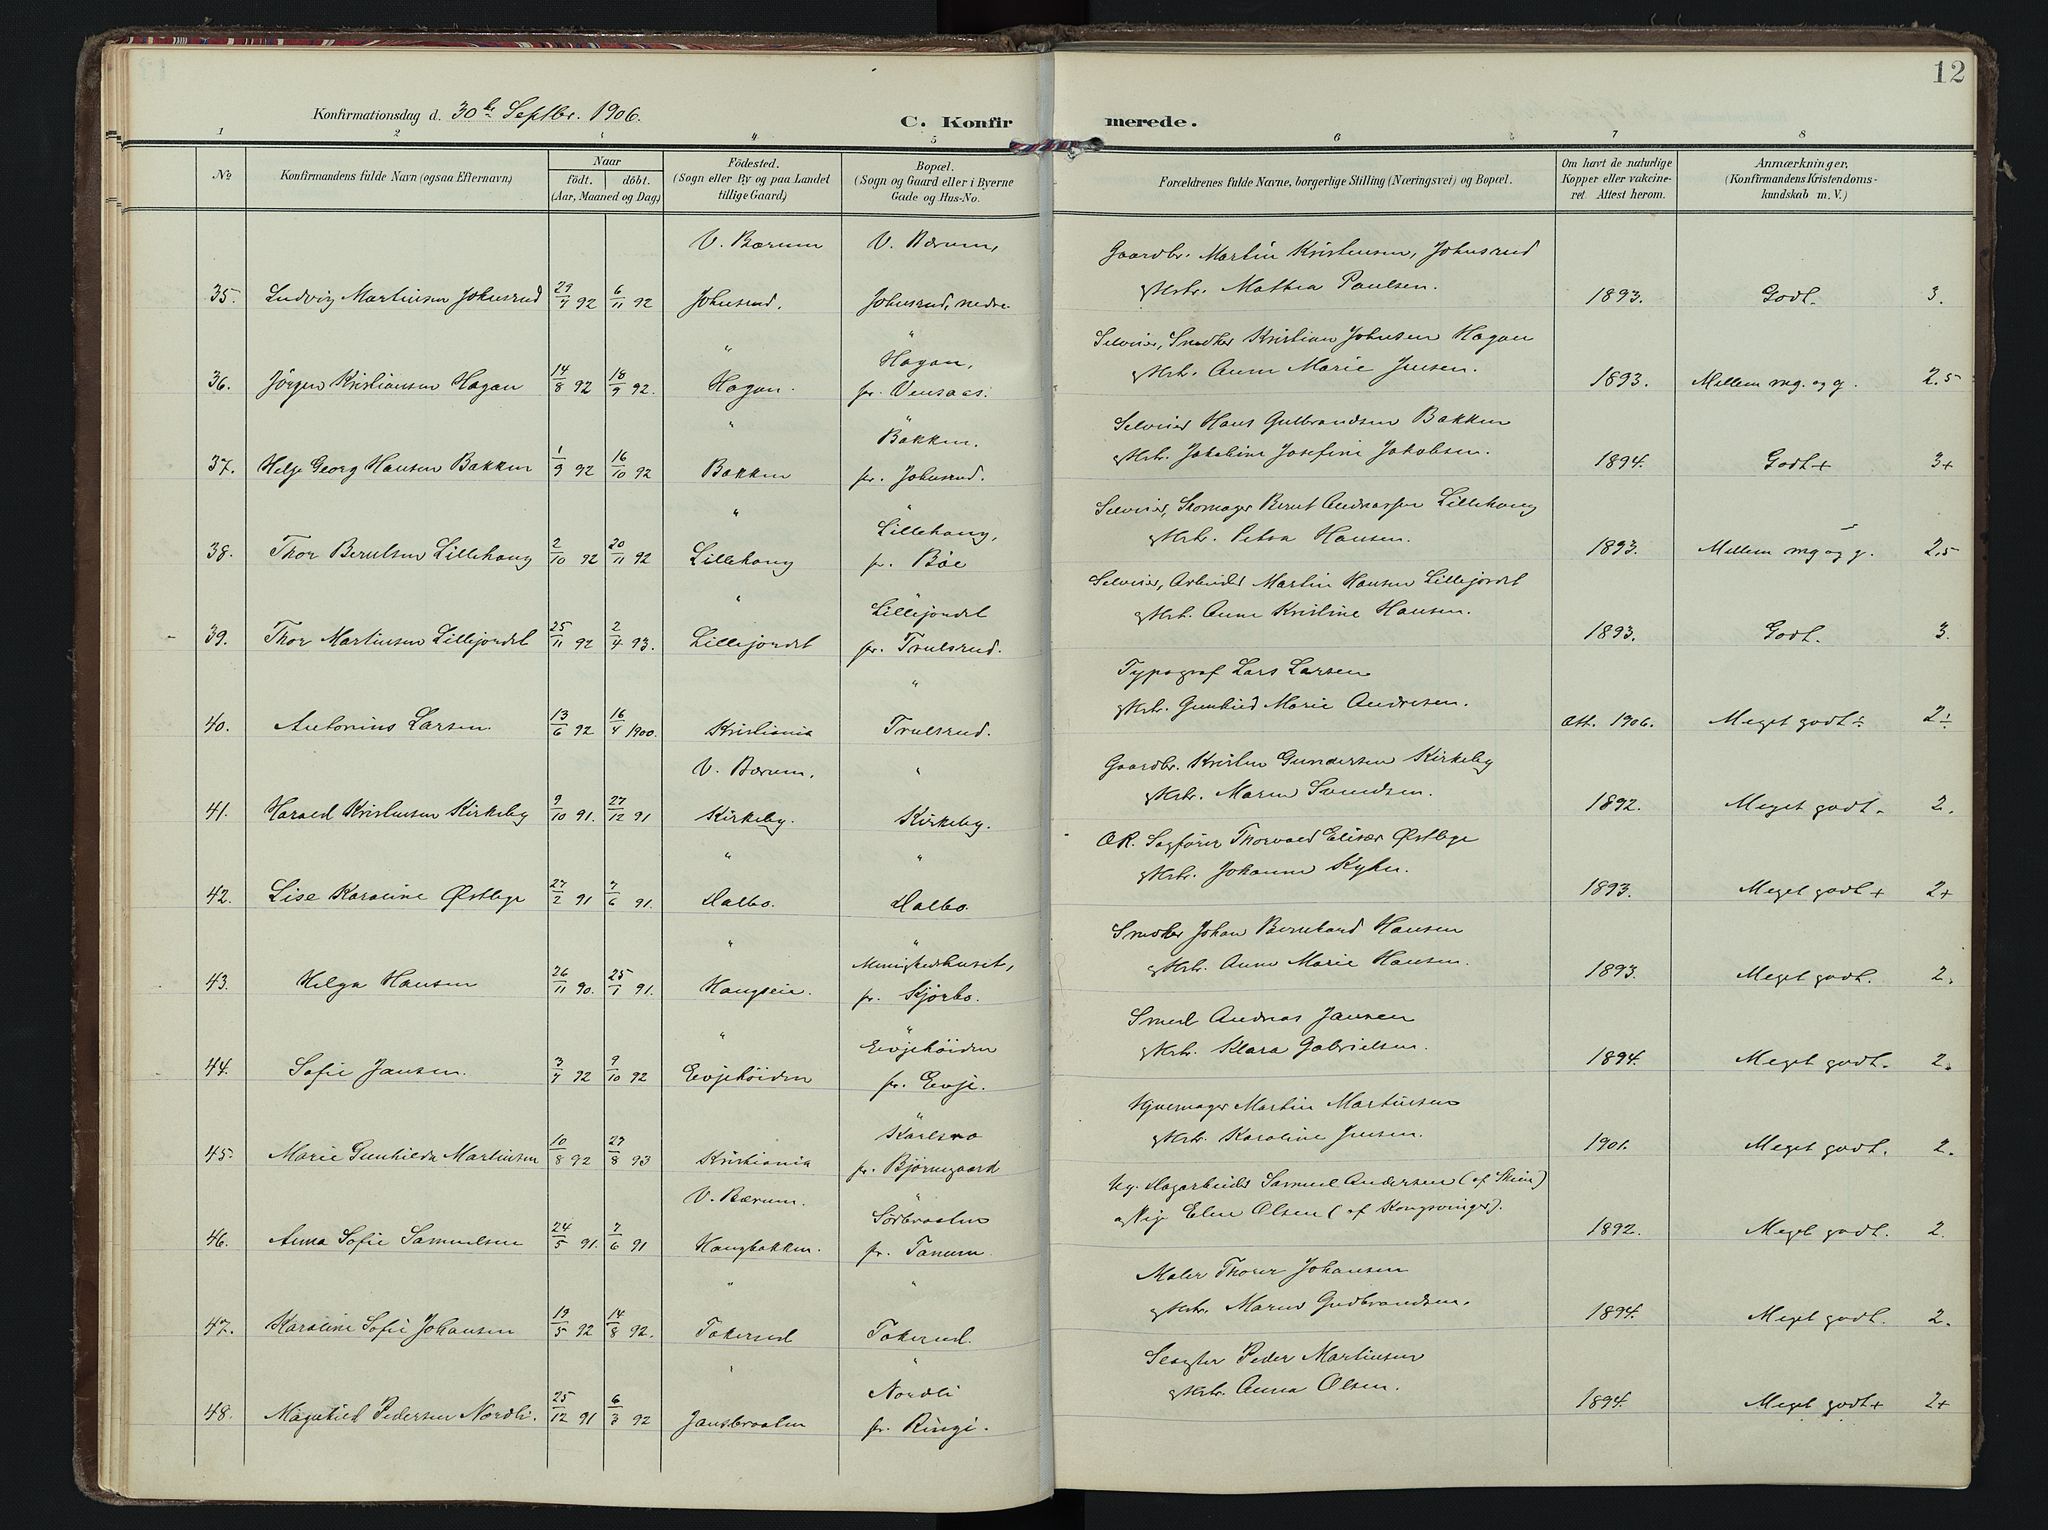 12
Konfirmationsdag d. 30te Septbr. 1906.
C. Konfirmerede.
1 2 3 4 5 6 7 8
No
Konfirmandens fulde Navn (ogsaa Efternavn)
Naar
födt. döbt.
(Aar, Maaned og Dag)
Födested.
(Sogn eller By og paa Landet
tillige Gaard)
Bopæl.
(Sogn og Gaard eller i Byerne
Gade og Hus-No.
Forældrenes fulde Navne, borgerlige Stilling (Næringsvei) og Bopæl.
Om havt de naturlige
Kopper eller vakcine-
ret. Attest herom.
Anmærkninger.
(Konfirmandens Kristendoms-
kundskab m. V.)
V. Bærum V. Bærum, Gaardbr. Martin Kristensen, Johnsrud
35. Ludvig Martinsen Johnsrud 29/7 92 6/11 92 Johnsrud. Johnsrud, nedre
og Hstr. Mathea Paulsen. 1893. Godt. 3.
" " Selveier, Snedker Kristian Johnsen Hagan
36. Jörgen Kristiansen Hagan 14/8 92 18/9 92. Hagan. Hagan,
pr. Vensaas.
og Hstr. Anne Marie Jensen. 1893. Mellem mg. og g. 2,5
" " Selveier Hans Gulbrandsen Bakken
37. Helge Georg Hansen Bakken 1/9 92 16/10 92 Bakken Bakken.
pr. Johnsrud.
og Hstr. Jakobine Josefine Jakobsen. 1894. Godt+ 3+
" " Selveier, Skomager Bernt Andreassen Lillehaug
38. Thor Berntsen Lillehaug 2/10 92 20/11 92 Lillehaug Lillehaug,
pr. Böe
og Hstr. Petra Hansen. 1893. Mellem mg og g. 2,5
" " Selveier, Arbeider Martin Hansen Lillejordet
39. Thor Martinsen Lillejordet 25/11 92 2/4 93. Lillejordet Lillejordet
pr. Trulsrud.
og Hstr. Anne Kristine Hansen. 1893. Godt. 3.
" Typograf Lars Larsen
40. Antonius Larsen 13/6 92 16/4 1900. Kristiania Trulsrud.
og Hstr. Gunhild Marie Andresen. Att. 1906. Meget godt÷ 2÷
V. Bærum. " Gaardbr. Kristen Gundersen Kirkeby
41. Harald Kristensen Kirkeby 9/10 91. 27/12 91 Kirkeby. Kirkeby.
og Hstr. Maren Svendsen. 1892. Meget godt. 2.
" " O.R. Sagförer Thorvald Elisær Østbye
42. Lise Karoline Østbye 27/2 91 7/6 91. Dalbo. Dalbo.
og Hstr. Johanne Kyhn. 1893. Meget godt + 2+
" " Snedker Johan Bernhard Hansen
43. Helga Hansen 26/11 90. 25/1 91. Haugseie. Menighedshuset,
pr. Skjørbo.
og Hstr. Anne Marie Hansen. 1893. Meget godt. 2.
" " Smed Andreas Jansen
44. Sofie Jansen. 3/7 92 9/10 92 Eevjehöiden Eevjehöiden
pr. Eevje.
og Hstr. Klara Gabrielsen. 1894. Meget godt. 2.
" Hjulmager Martin Martinsen
45. Marie Gunhilda Martinsen 10/8 92 27/8 93 Kristiania Karlsro
pr. Björnegaard
og Hstr. Karoline Jensen. 1901. Meget godt. 2.
V. Bærum. " Ug. Dagarbeider Samuel Andersen (af Skien)
46. Anna Sofie Samuelsen 24/5 91. 7/6 91 Haugbakken. Sörbraaten
pr. Tanum.
og Pige Eline Olsen (af Kongsvinger). 1892. Meget godt. 2.
" " Maler Thorer Johansen
47. Karoline Sofie Johansen 19/5 92 14/8 92. Tokerud Tokerud.
og Hstr. Maren Gudbrandsen. 1894. Meget godt. 2.
" " Slagter Peder Martinsen
48. Magnhild Pedersen Nordli. 25/12 91 6/3 92 Jansbraaten Nordli
pr. Ringi.
og Hstr. Anna Olsen. 1894. Meget godt+ 2+